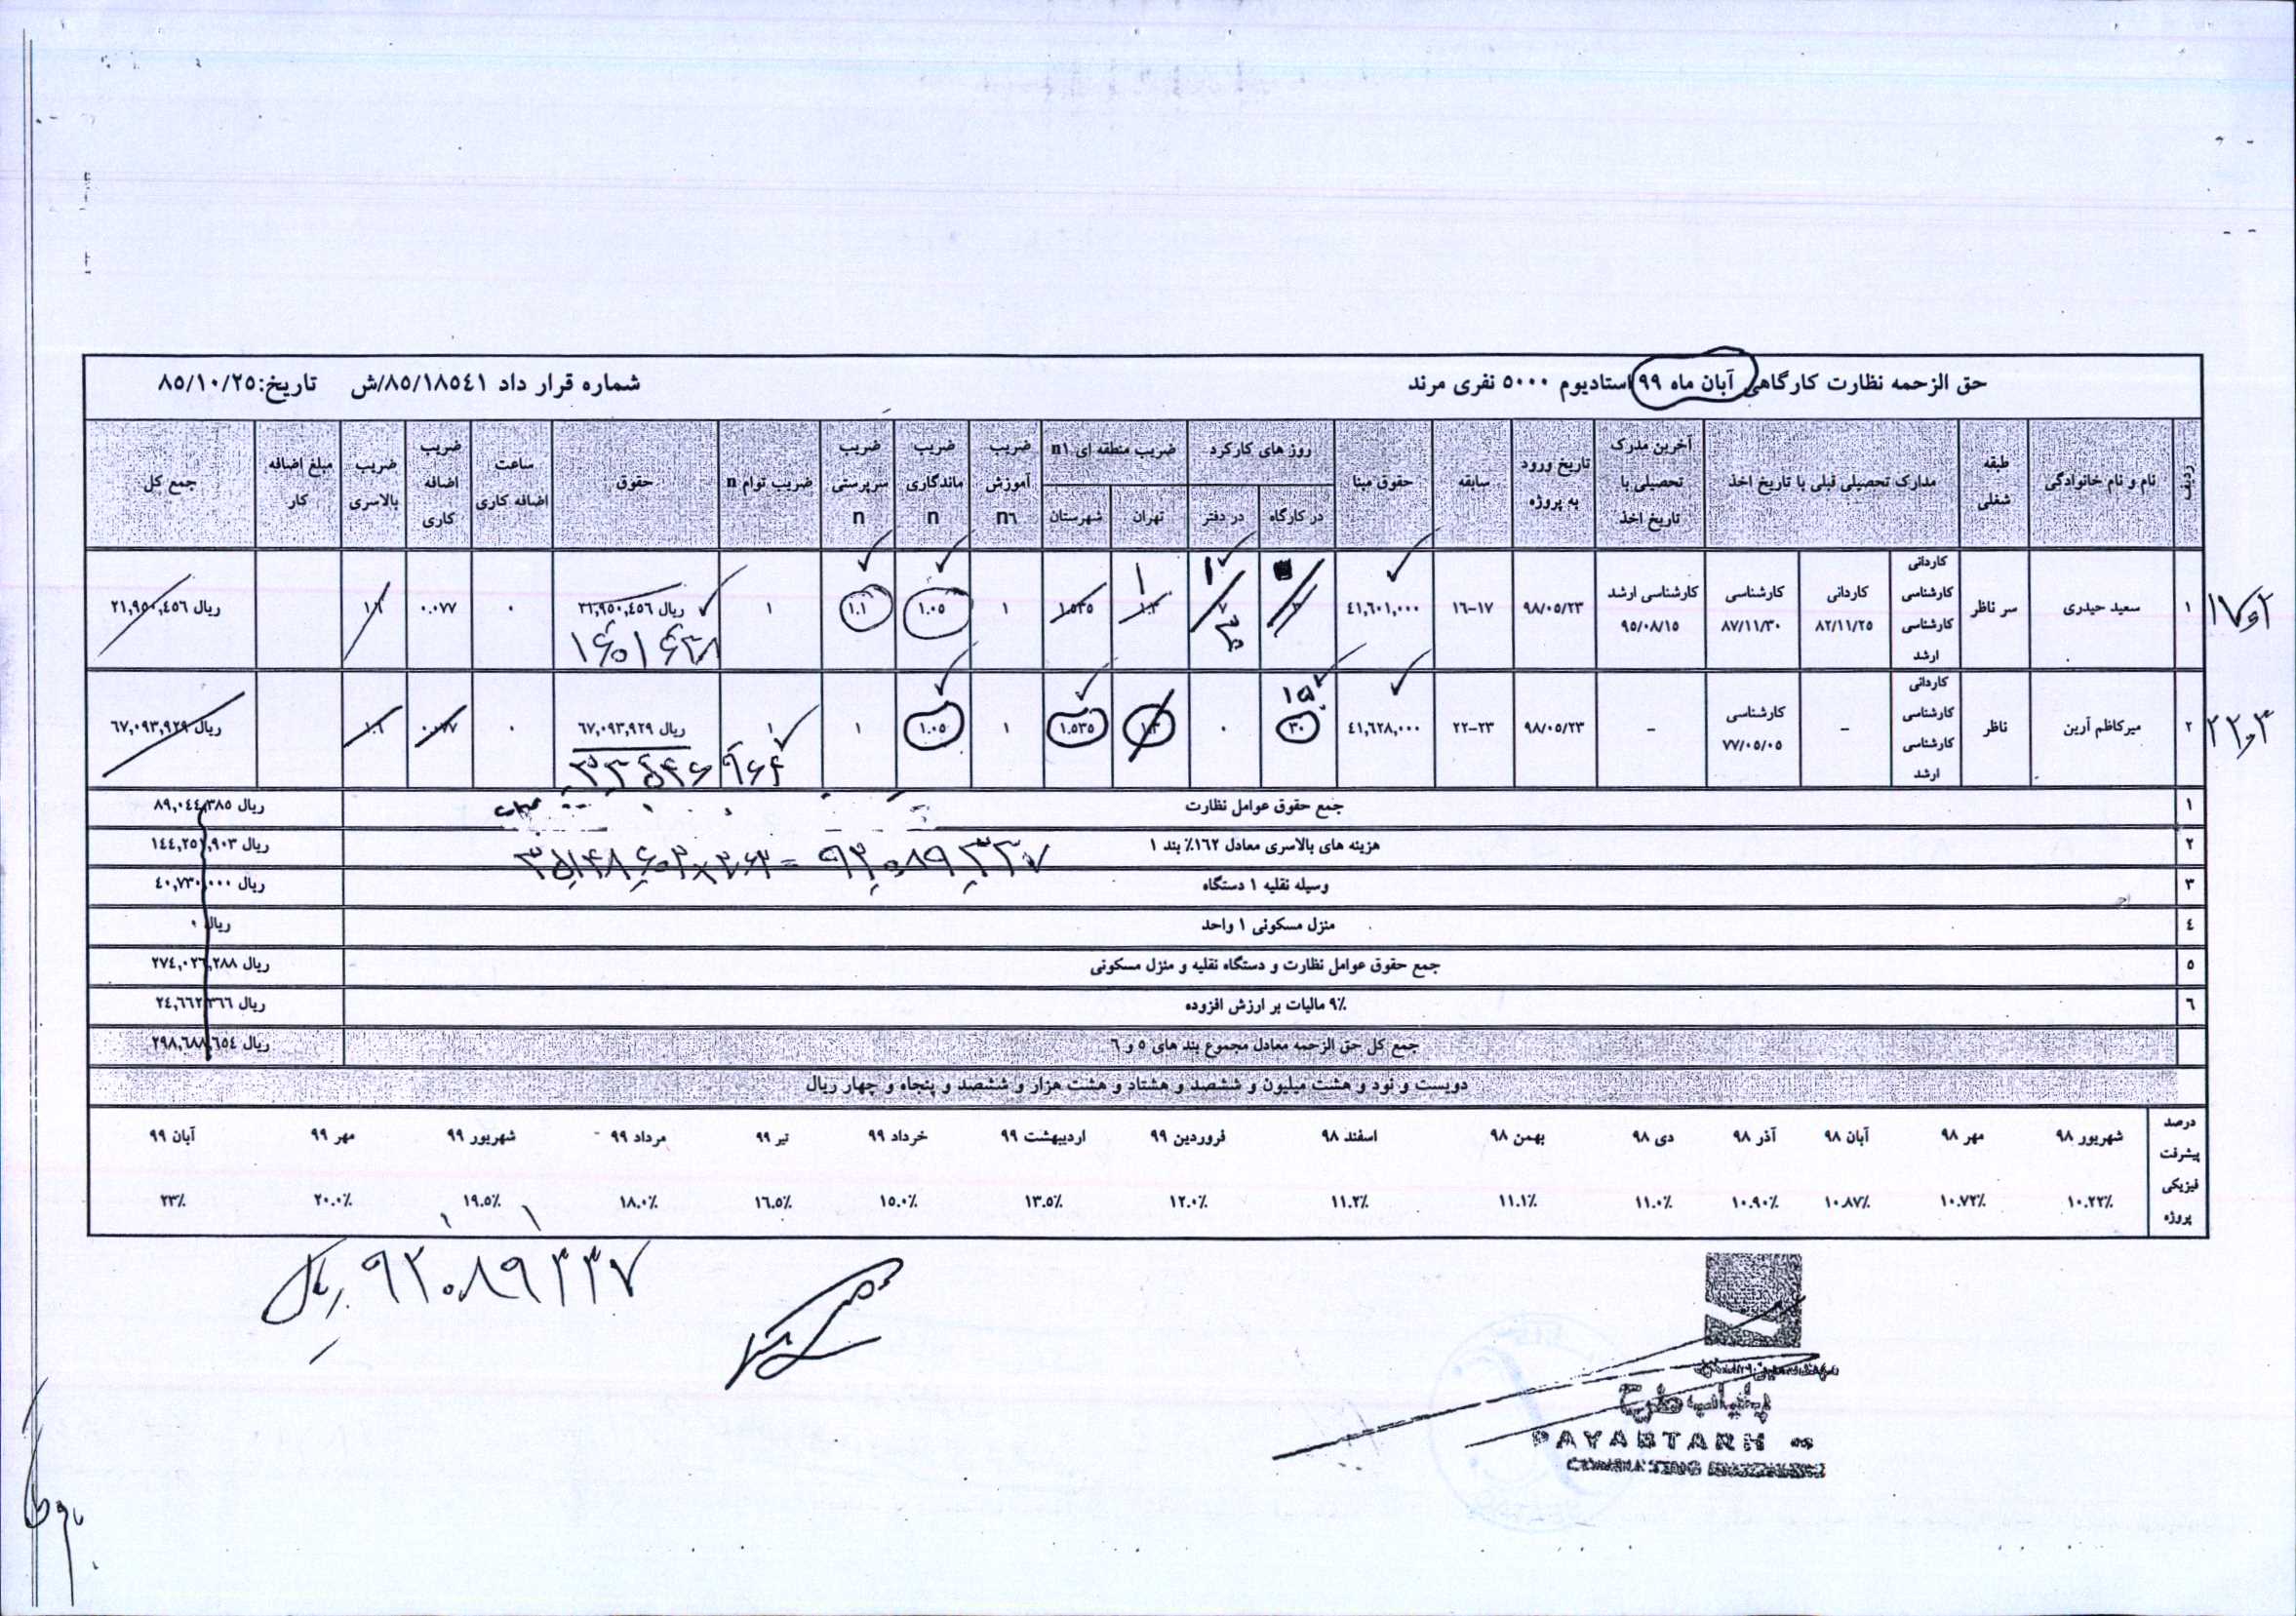 حق الزحمه نظارت کارگاهی آبان ماه ۹۹ استادیوم ۵۰۰۰ نفری مرند شماره قرار داد ۸۵/۱۸۵٤۱/ش تاریخ:۸۵/۱۰/۲۵
ردیف نام و نام خانوادگی طبقه شغلی مدارک تحصیلی قبلی با تاریخ اخذ آخرین مدرک تحصیلی با تاریخ اخذ تاریخ ورود به پروژه سابقه حقوق مبنا روز های کارکرد ضریب منطقه ای n۱ ضریب آموزش n٦ ضریب ماندگاری n ضریب سرپرستی n ضریب توام n حقوق ساعت اضافه کاری ضریب اضافه کاری ضریب بالاسری مبلغ اضافه کار جمع کل
در کارگاه در دفتر تهران شهرستان
۱ سعید حیدری سر ناظر کاردانی کارشناسی کارشناسی ارشد کاردانی ۸۲/۱۱/۲۵ کارشناسی ۸۷/۱۱/۳۰ کارشناسی ارشد ۹۵/۰۸/۱۵ ۹۸/۰۵/۲۳ ۱۶-۱۷ ٤۱,٦۰۱,۰۰۰ ۷ ۱.۳ ۱.۵۳۵ ۱ ۱.۰۵ ۱.۱ ۱ ریال ۲۱,۹۵۰,٤۵٦ ۰ ۰.۰۷۷ ۱.٦ ریال ۲۱,۹۵۰,٤۵٦
۲ میرکاظم آرین ناظر کاردانی کارشناسی کارشناسی ارشد – کارشناسی ۷۷/۰۵/۰۵ – ۹۸/۰۵/۲۳ ۲۲-۲۳ ٤۱,٦۲۸,۰۰۰ ۱۵ ۳۰ ۰ ۱.۳ ۱.۵۳۵ ۱ ۱.۰۵ ۱ ۱ ریال ٦۷,۰۹۳,۹۲۹ ۰ ۰.۰۷۷ ۱.٦ ریال ٦۷,۰۹۳,۹۲۹
۳۳۵۴۶۹۶۴
۱ جمع حقوق عوامل نظارت ریال ۸۹,۰٤٤,۳۸۵
۲ هزینه های بالاسری معادل ۱٦۲٪ بند ۱ ریال ۱٤٤,۲۵۱,۹۰۳
۳ وسیله نقلیه ۱ دستگاه ریال ٤۰,۷۳۰,۰۰۰
٤ منزل مسکونی ۱ واحد ریال ۰
۵ جمع حقوق عوامل نظارت و دستگاه نقلیه و منزل مسکونی ریال ۲۷٤,۰۲٦,۲۸۸
٦ ۹٪ مالیات بر ارزش افزوده ریال ۲٤,٦٦۲,۳٦٦
جمع کل حق الزحمه معادل مجموع بند های ۵ و ٦ ریال ۲۹۸,٦۸۸,٦۵٤
دویست و نود و هشت میلیون و ششصد و هشتاد و هشت هزار و ششصد و پنجاه و چهار ریال
درصد پیشرفت فیزیکی پروژه شهریور ۹۸ مهر ۹۸ آبان ۹۸ آذر ۹۸ دی ۹۸ بهمن ۹۸ اسفند ۹۸ فروردین ۹۹ اردیبهشت ۹۹ خرداد ۹۹ تیر ۹۹ مرداد ۹۹ شهریور ۹۹ مهر ۹۹ آبان ۹۹
۱۰.۲۲٪ ۱۰.۷۲٪ ۱۰.۸۷٪ ۱۰.۹۰٪ ۱۱.۰٪ ۱۱.۱٪ ۱۱.۲٪ ۱۲.۰٪ ۱۳.۵٪ ۱۵.۰٪ ۱٦.۵٪ ۱۸.۰٪ ۱۹.۵٪ ۲۰.۰٪ ۲۳٪
۹۲۰۸۹۳۳۷ ریال
پایاب طرح
PAYABTARH